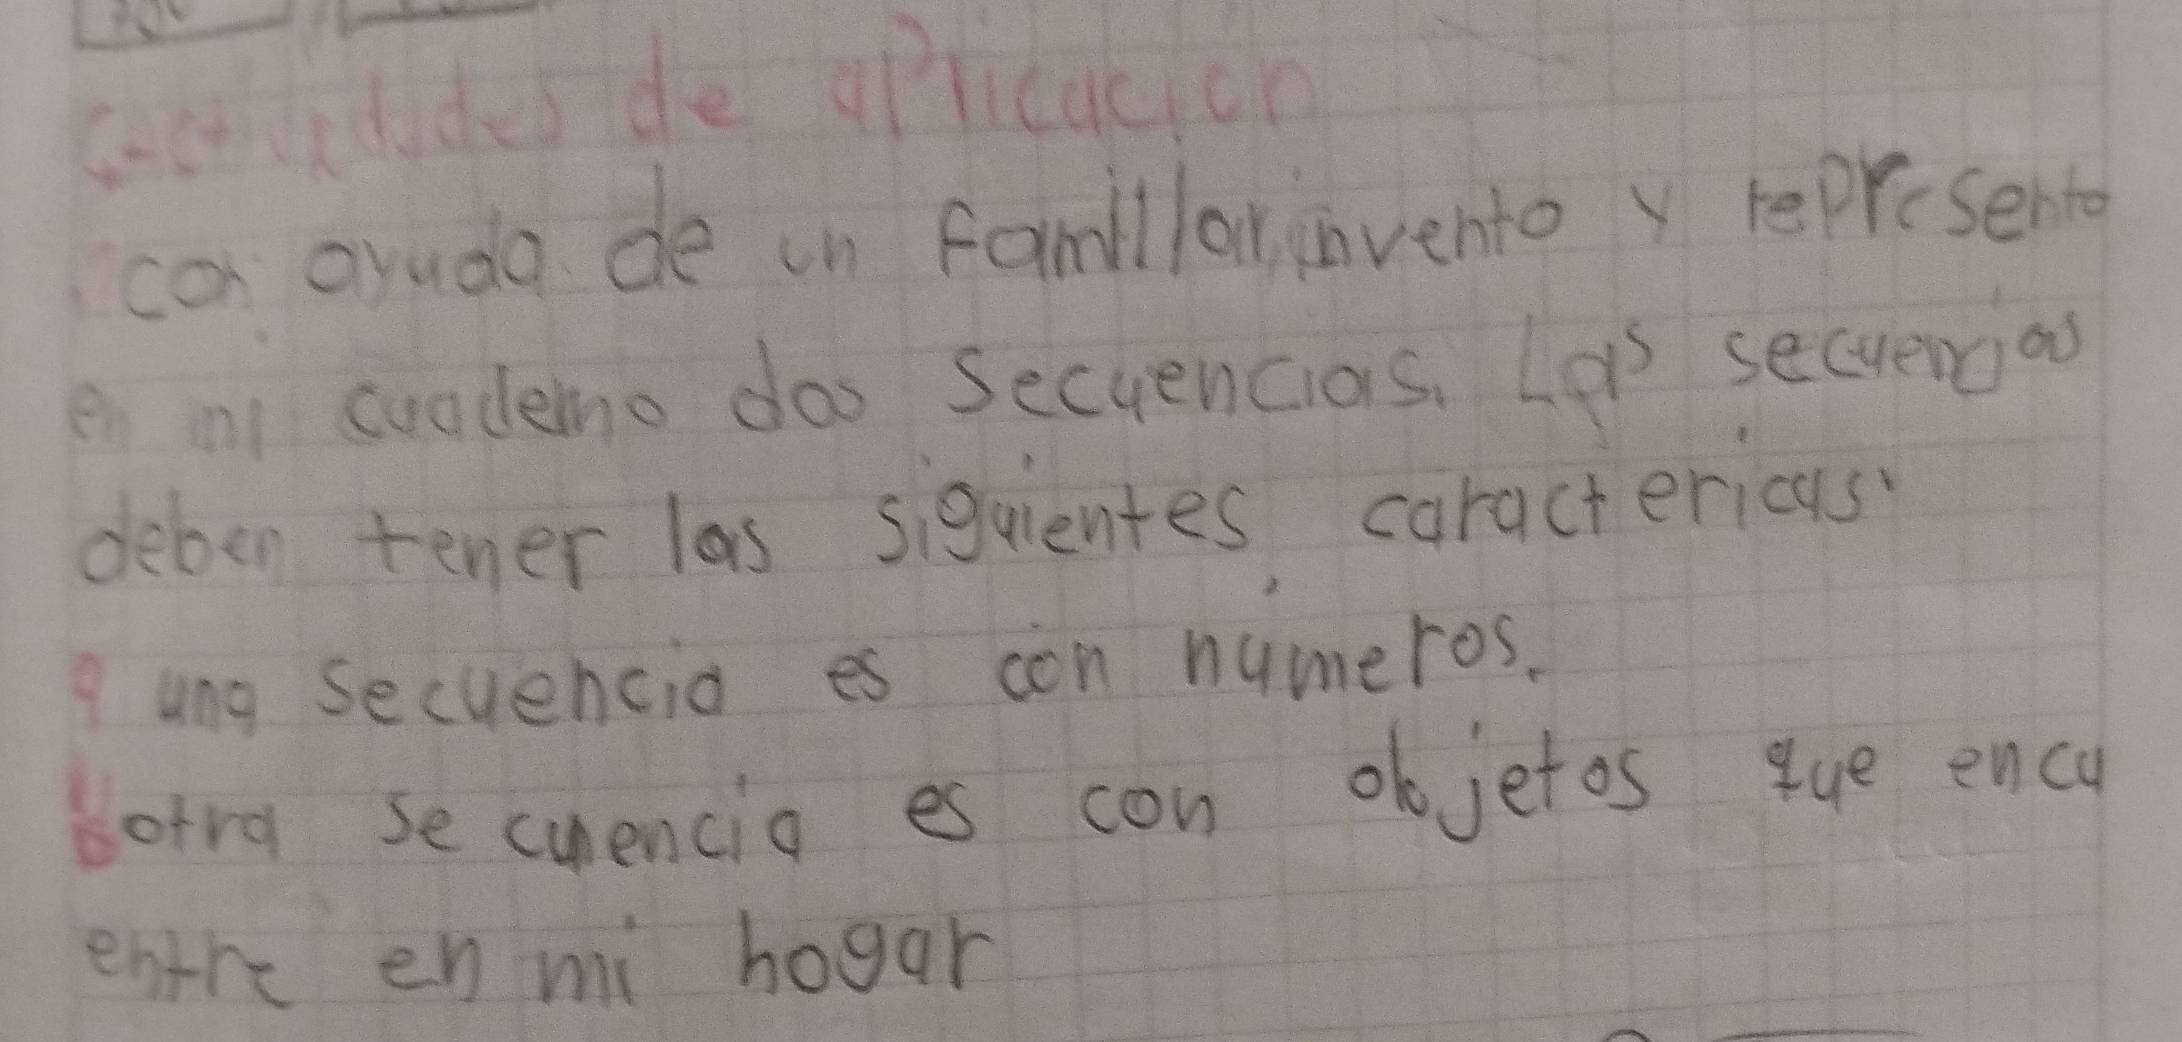 de aplicación
con ayuda de un familiar, invento y represento
en mi cuaderno dos secuencias. Las secuencias
deben tener las siguientes, caractericas:
a una secuencia es con números.
b otra secuencia es con objetos que encu
entre en mi hogar